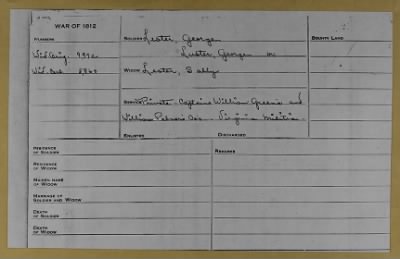 WAR OF 1812
NUMBERS
SOLDIER Lester, George
Luster, George or
BOUNTY LAND
Wid. Orig.
Wid. Ctf.
WIDOW Lester, Sally
SERVICE Private - Captains William Green's and
William Cos. Virginia Militia
ENLISTED
DISCHARGED
RESIDENCE
OF SOLDIER
REMARKS
RESIDENCE
OF WIDOW
MAIDEN NAME
OF WIDOW
MARRIAGE OF
SOLDIER AND WIDOW
DEATH
OF SOLDIER
DEATH
OF WIDOW